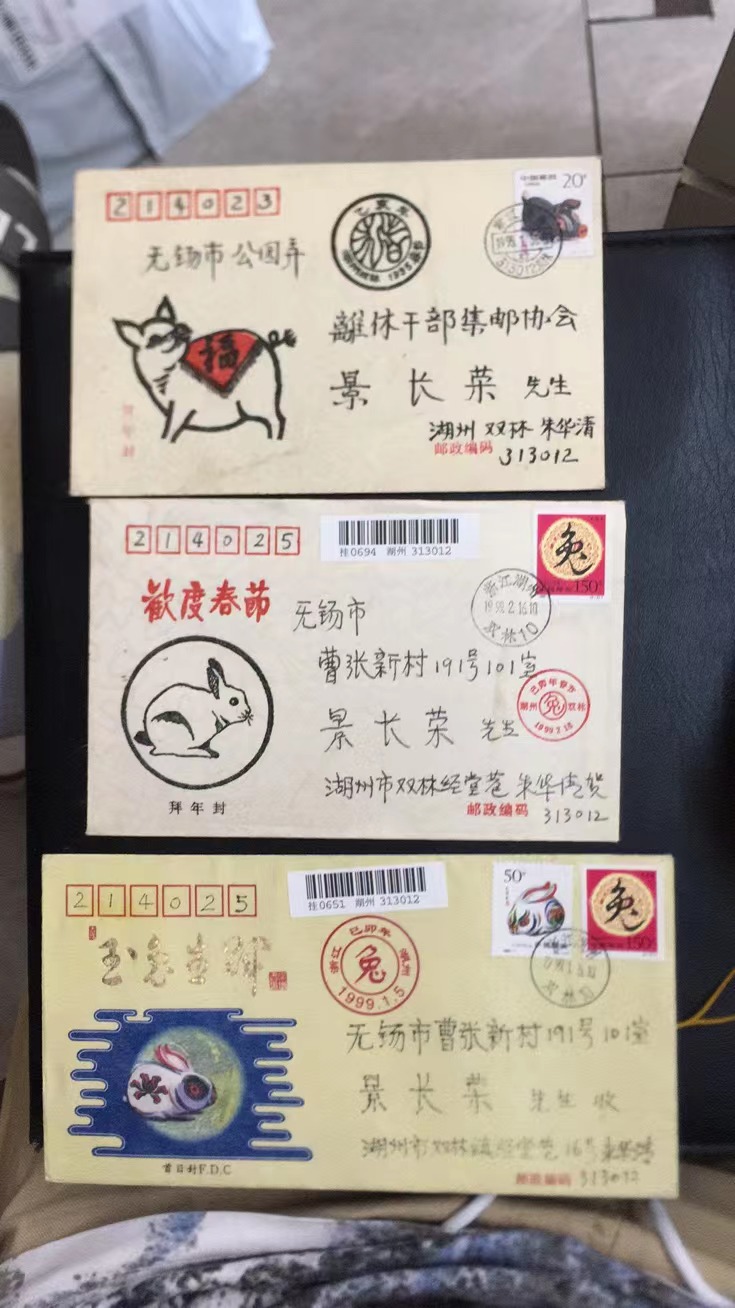 214023
中国邮政
20分
乙亥年
猪
1995春节
浙江
313012
无锡市公园弄
福
離休干部集邮协会
景长荣 先生
湖州 双林 朱华清
贺年封
邮政编码 313012
214025
挂0694 湖州 313012
兔
150分
歡度春節
浙江湖州
1999.2.16.10
双林10
无锡市
曹张新村191号101室
己卯年春节
湖州 兔 双林
1999.2.16
景长荣 先生
湖州市双林经堂巷 朱华清贺
拜年封
邮政编码 313012
214025
挂0651 湖州 313012
50分
兔
150分
己卯年
浙江 兔 湖州
1999.1.5
双林10
无锡市曹张新村191号101室
景长荣 先生 收
湖州市双林镇经堂巷16号 朱华清
首日封F.D.C
邮政编码 313012